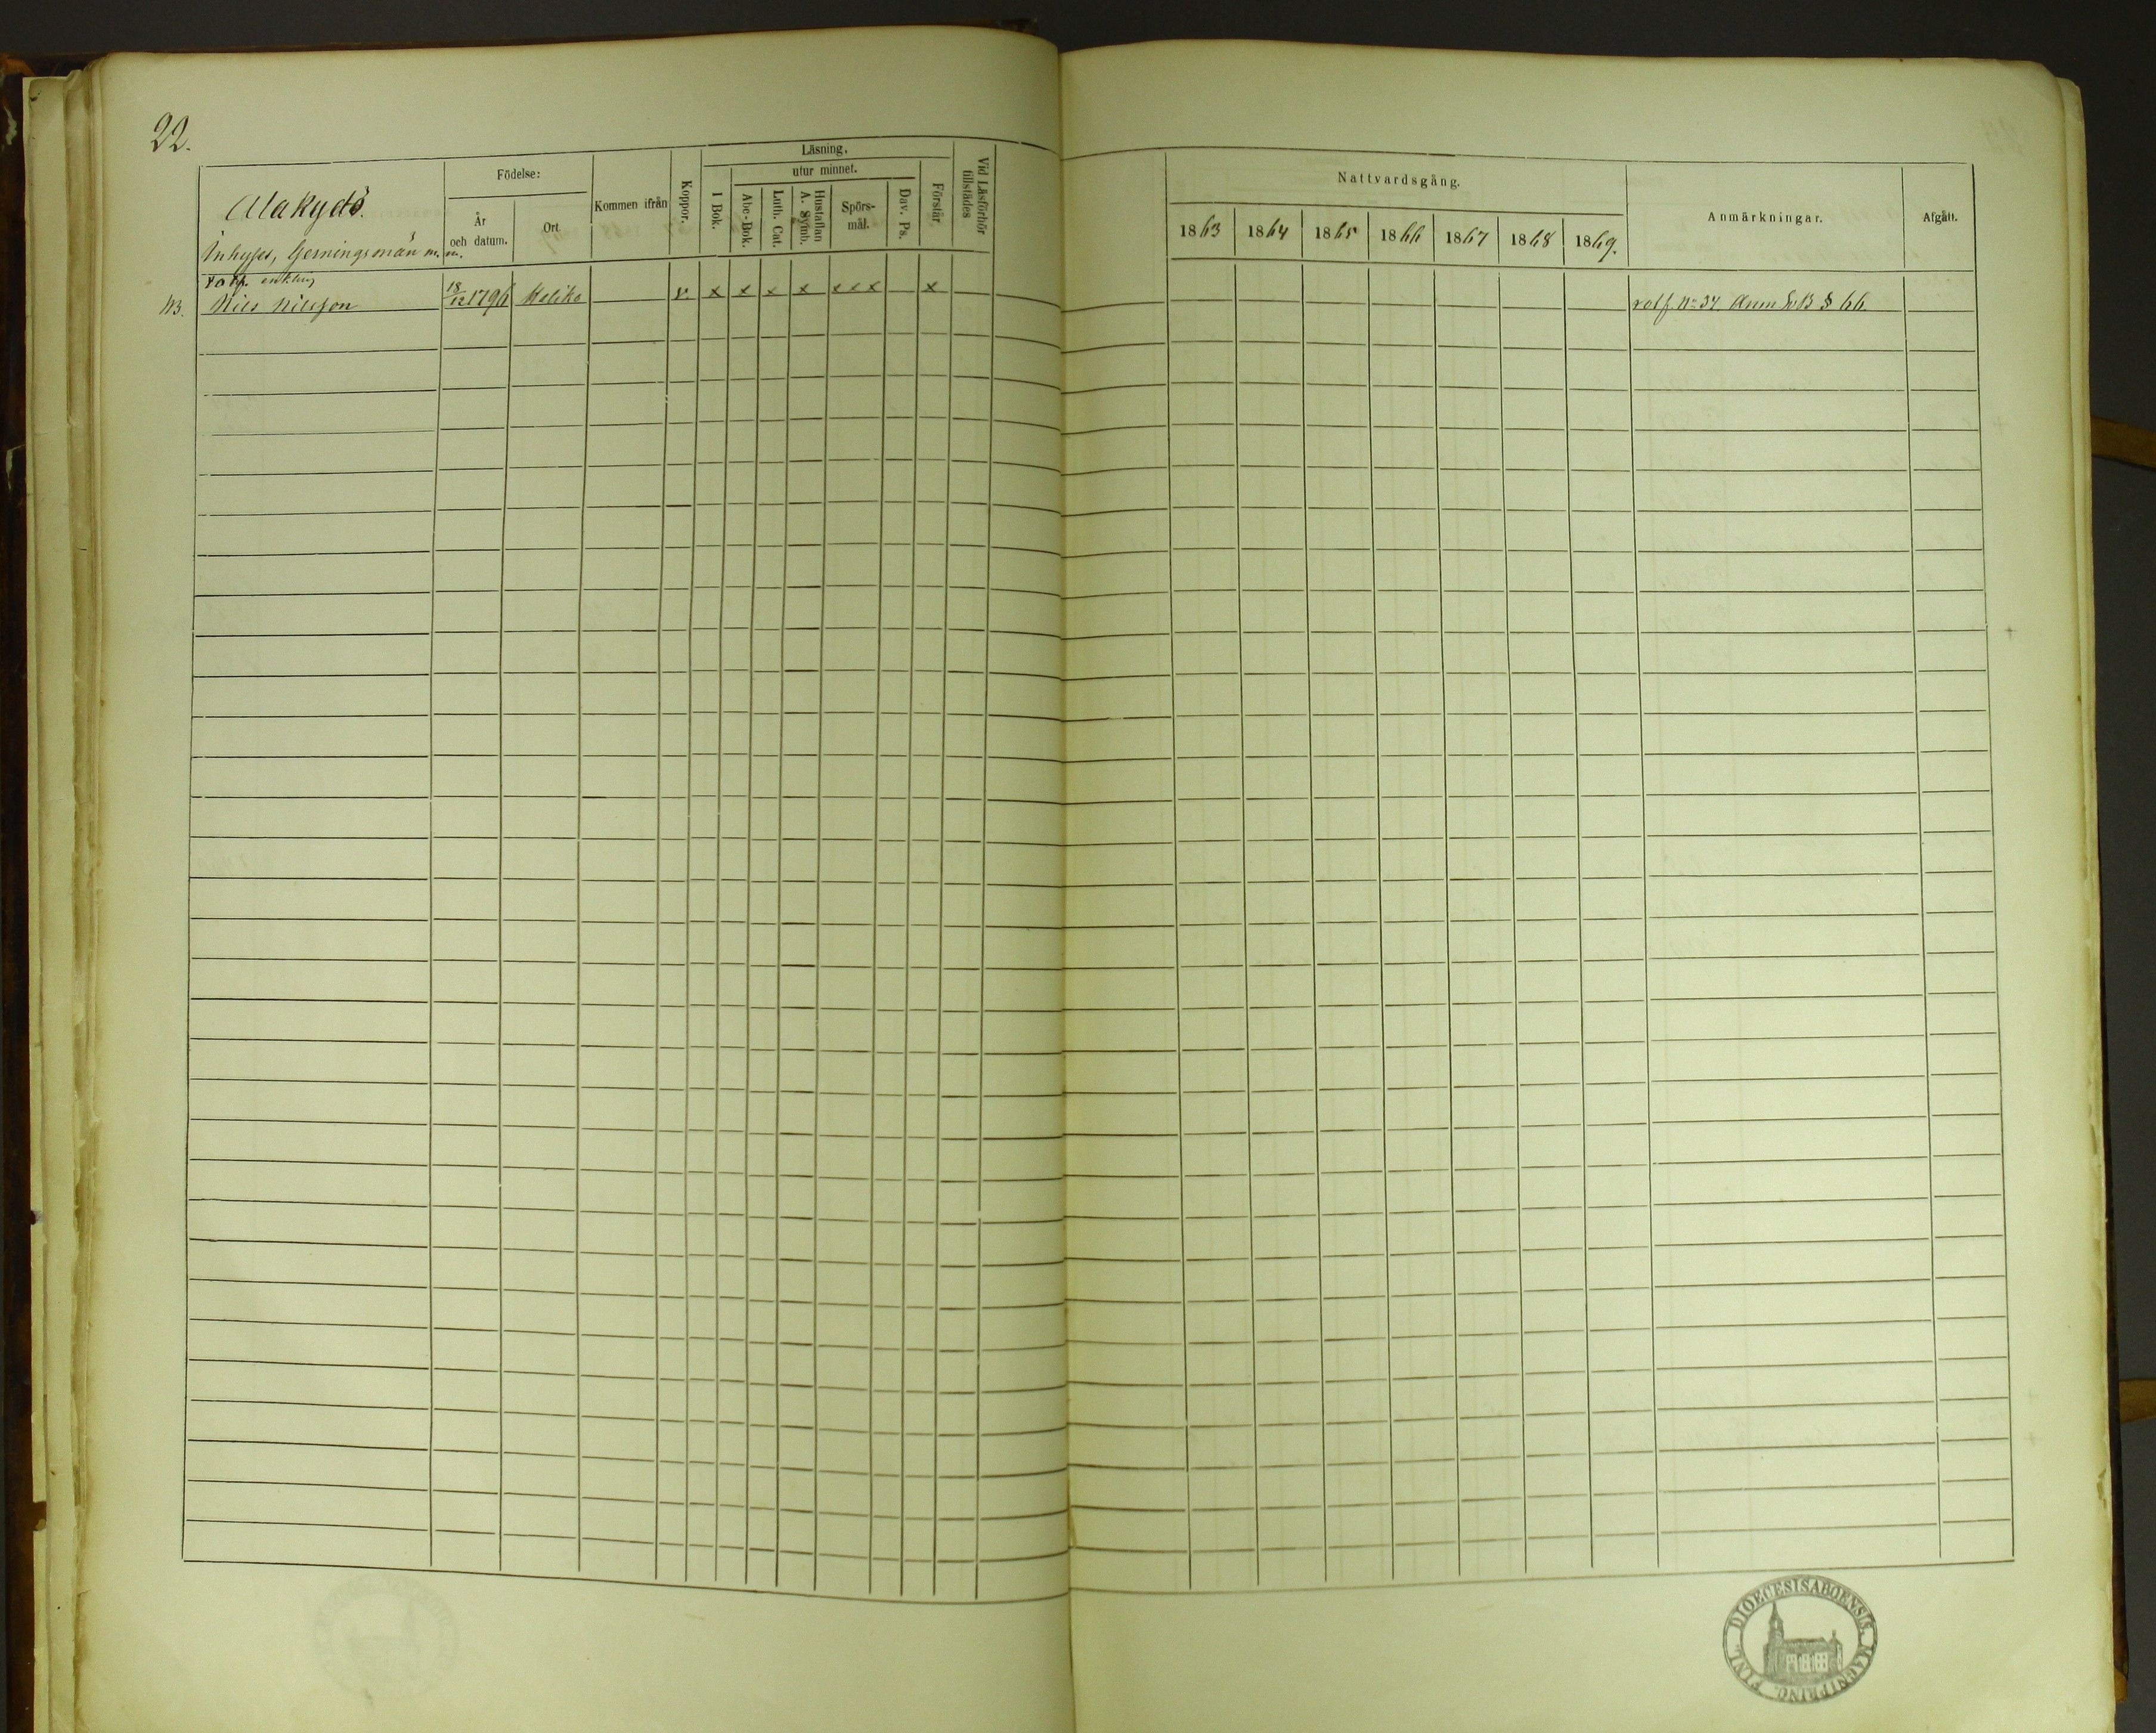 22.
Alakydö.
Inhyses, Gerningsmän m. m.
Födelse:
År
och datum.
Ort.
Kommen ifrån
Koppor.
Läsning.
utur minnet.
I Bok.
Abc-Bok.
Luth. Cat.
Hustaflan
A. Symb.
Spörs-
mål.
Dav. Ps.
Förstår.
Vid Läsförhör
tillstädes
Nattvardsgång.
1863 1864 1865 1866 1867 1868 1869.
Anmärkningar.
Afgått.
enkling
Nils Nilsson 18/12 1796 Haliko v. x x x x x x x x rotf. No 37. Anm § 66.
DIOECESIS ABOENSIS. MAGNI PRINC. FINL.